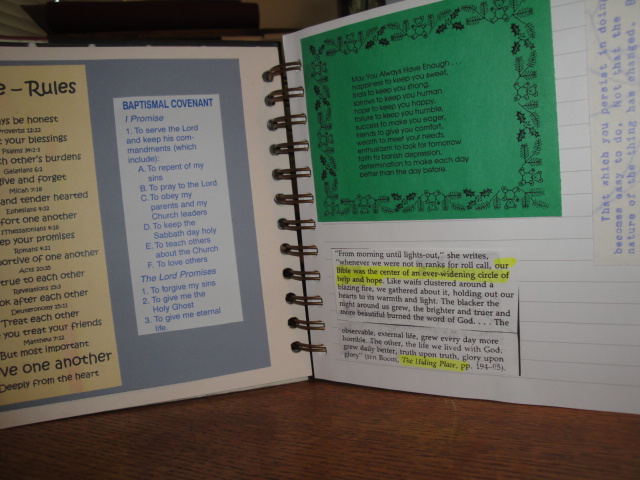 e – Rules
ys be honest
roverbs 12:22
t your blessings
Psalms 34:1-3
ch other's burdens
Galatians 6:2
give and forget
Micah 7:18
and tender hearted
Ephesians 4:32
fort one another
I Thessalonians 4:18
ep your promises
Romans 4:21
portive of one another
Acts 20:35
true to each other
Revelations 15:3
ok after each other
Deuteronomy 15:11
Treat each other
e you treat your friends
Matthew 7:12
But most important
ve one another
Deeply from the heart
BAPTISMAL COVENANT
I Promise
1. To serve the Lord
and keep his com-
mandments (which
include):
A. To repent of my
sins
B. To pray to the Lord
C. To obey my
parents and my
Church leaders
D. To keep the
Sabbath day holy
E. To teach others
about the Church
F. To love others
The Lord Promises
1. To forgive my sins
2. To give me the
Holy Ghost
3. To give me eternal
life.
May You Always Have Enough . . .
happiness to keep you sweet,
trials to keep you strong,
sorrows to keep you human
hope to keep you happy,
failure to keep you humble,
success to make you eager,
friends to give you comfort,
wealth to meet your needs,
enthusiasm to look for tomorrow
faith to banish depression,
determination to make each day
better than the day before.
"From morning until lights-out," she writes,
"whenever we were not in ranks for roll call, our
Bible was the center of an ever-widening circle of
help and hope. Like waifs clustered around a
blazing fire, we gathered about it, holding out our
hearts to its warmth and light. The blacker the
night around us grew, the brighter and truer and
more beautiful burned the word of God. . . . The
observable, external life, grew every day more
horrible. The other, the life we lived with God,
grew daily better, truth upon truth, glory upon
glory" (ten Boom, The Hiding Place, pp. 194–95).
That which you persist in doing
becomes easy to do. Not that the
nature of the thing has changed. B